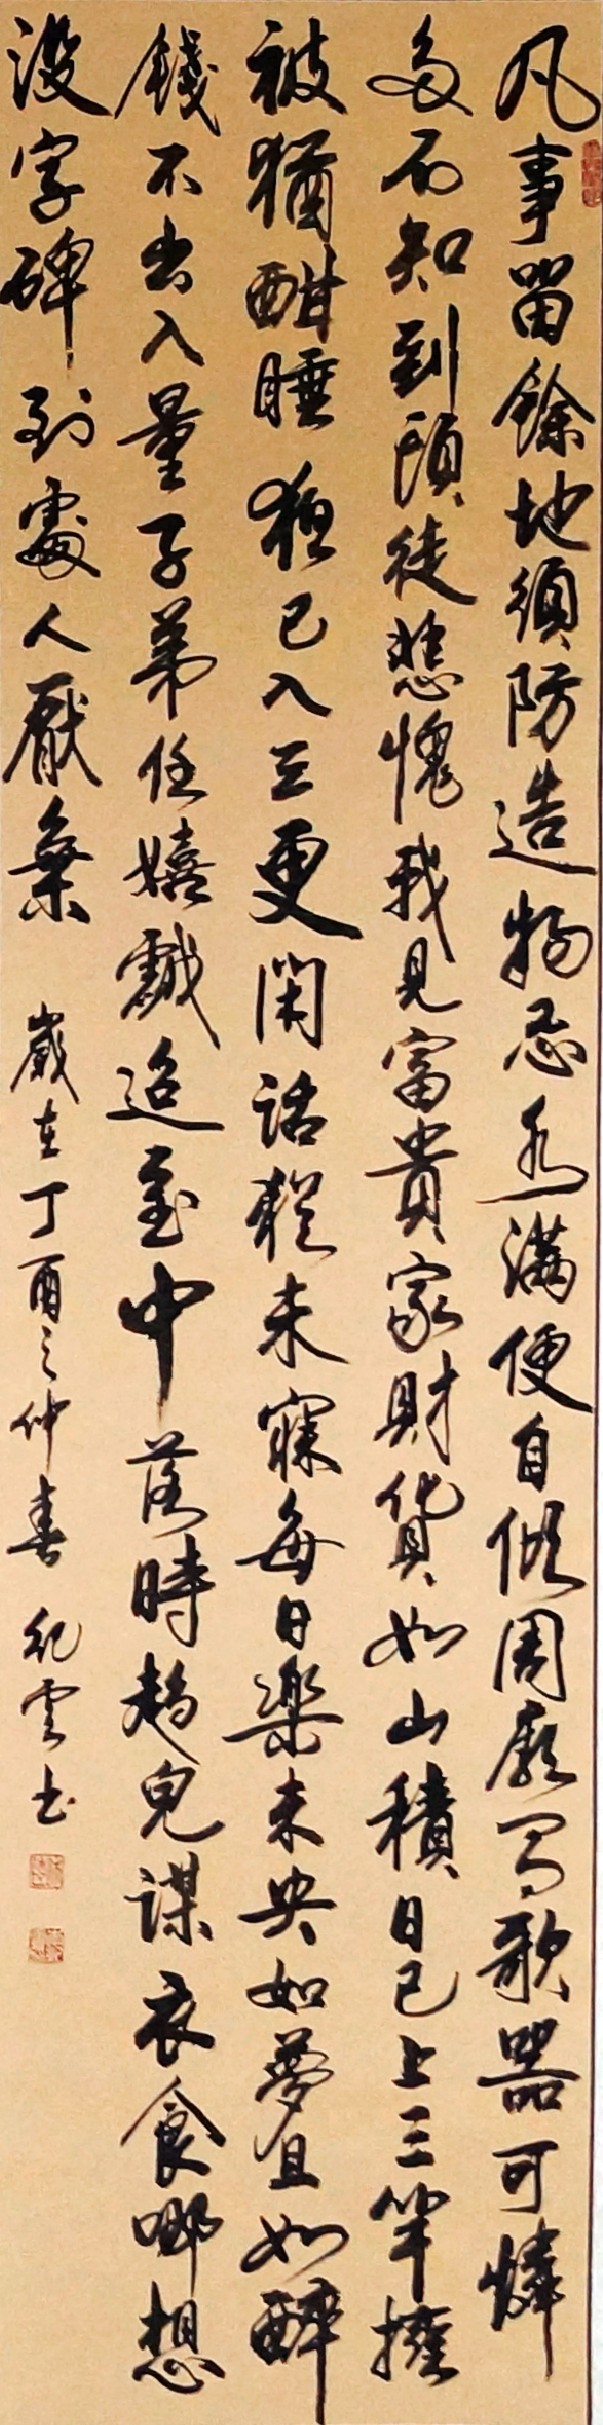 凡事留餘地須防造物忌水滿便自傾周廟寫欹器可憐
多不知到頭徒悲愧我見富貴家財貨如山積日已上三竿擁
被猶酣睡夜已入三更閑話猶未寐每日樂未央如夢且如醉
錢不出入量子弟任嬉戲迨至中落時趨兒謀衣食哪想
沒字碑到處人厭棄
歲在丁酉之仲春 紀雲書